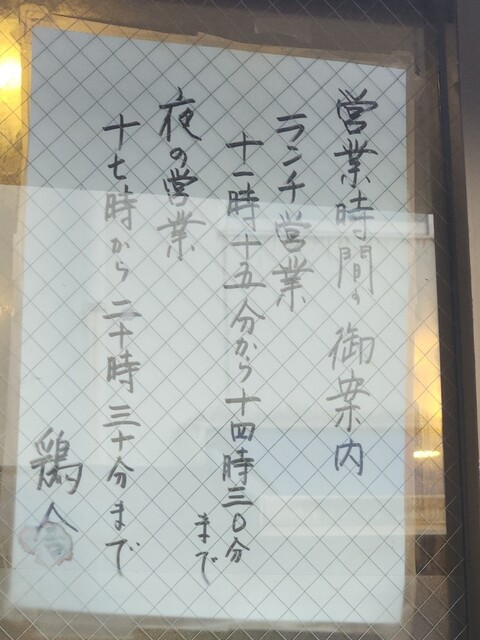 営業時間の御案内
ランチ営業
十一時十五分から十四時三0分
まで
夜の営業
十七時から二十時三十分まで
鶏